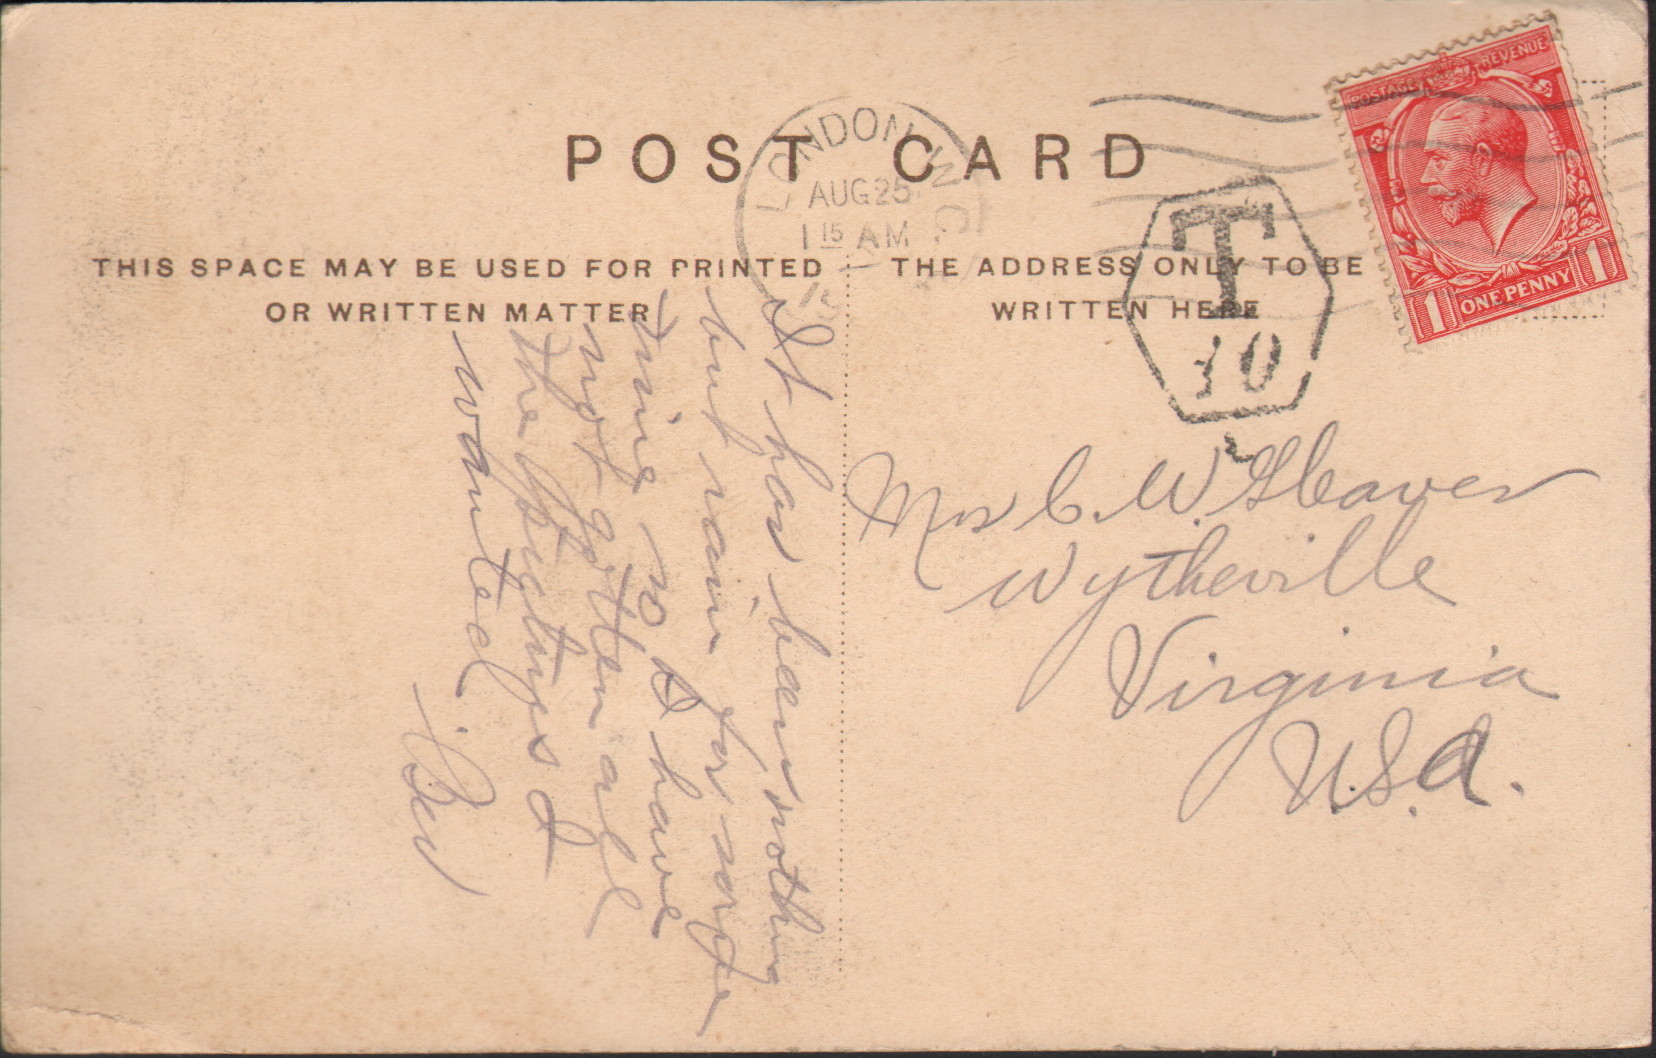 POST CARD
LONDON. W.C.
AUG 25
1 15 AM
POSTAGE REVENUE
1 ONE PENNY 1
T
10
L
THIS SPACE MAY BE USED FOR PRINTED
OR WRITTEN MATTER
THE ADDRESS ONLY TO BE
WRITTEN HERE
It has been nothing
but rain for some
time so I have
not gotten all
the pictures I
wanted.
Bev
Mrs C. W. Gleaves
Wytheville
Virginia
U.S.A.